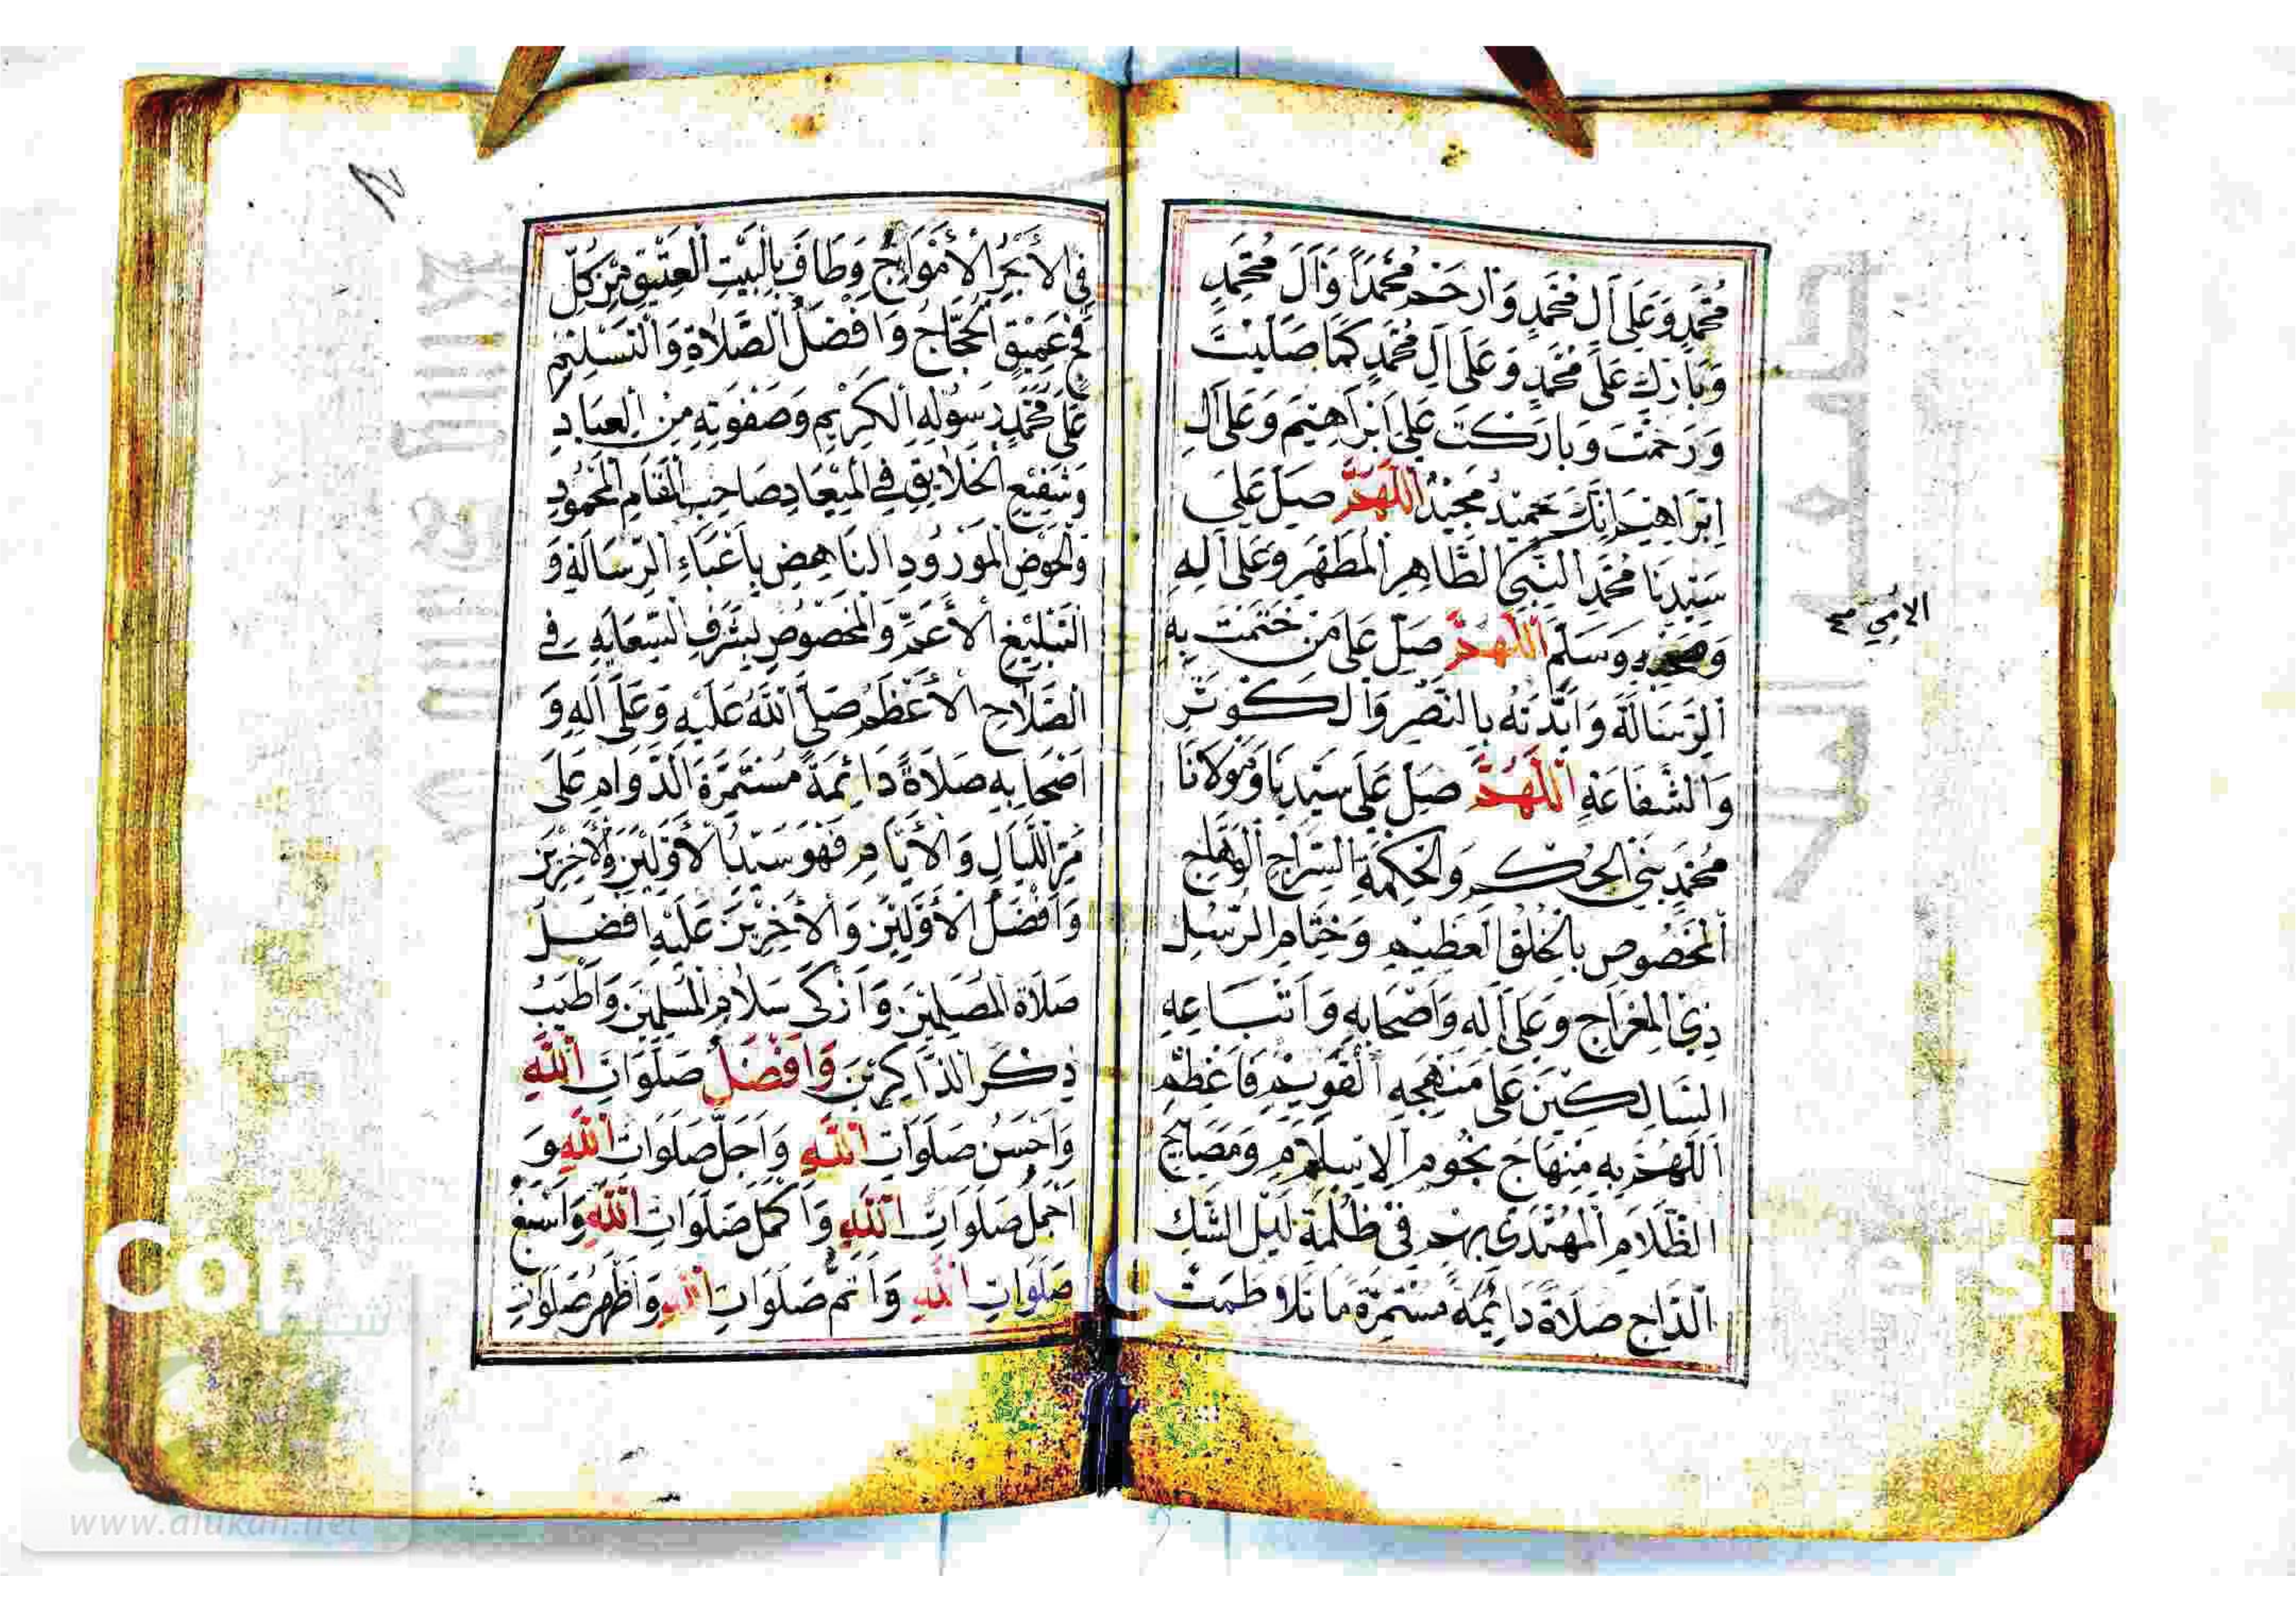 مُحَمَّدٍ وَعَلَى آلِ مُحَمَّدٍ وَارْحَمْ مُحَمَّدًا وَآلَ مُحَمَّدٍ
وَبَارِكْ عَلَى مُحَمَّدٍ وَعَلَى آلِ مُحَمَّدٍ كَمَا صَلَّيْتَ
وَرَحِمْتَ وَبَارَكْتَ عَلَى إِبْرَاهِيمَ وَعَلَى آلِ
إِبْرَاهِيمَ إِنَّكَ حَمِيدٌ مَجِيدٌ اللَّهُمَّ صَلِّ عَلَى
سَيِّدِنَا مُحَمَّدٍ النَّبِيِّ الطَّاهِرِ الْمُطَهَّرِ وَعَلَى آلِهِ
الأمي صح
وَصَحْبِهِ وَسَلِّمْ اللَّهُمَّ صَلِّ عَلَى مَنْ خَتَمْتَ بِهِ
الرِّسَالَةَ وَأَيَّدْتَهُ بِالنَّصْرِ وَالْكَوْثَرِ
وَالشَّفَاعَةِ اللَّهُمَّ صَلِّ عَلَى سَيِّدِنَا وَمَوْلَانَا
مُحَمَّدٍ نَبِيِّ الْحُكْمِ وَالْحِكْمَةِ السِّرَاجِ الْوَهَّاجِ
الْمَخْصُوصِ بِالْخُلُقِ الْعَظِيمِ وَخِتَامِ الرُّسُلِ
ذِي الْمِعْرَاجِ وَعَلَى آلِهِ وَأَصْحَابِهِ وَأَتْبَاعِهِ
السَّالِكِينَ عَلَى مَنْهَجِهِ الْقَوِيمِ فَأَعْظِمِ
اللَّهُمَّ بِهِ مِنْهَاجَ نُجُومِ الْإِسْلَامِ وَمَصَابِيحِ
الظَّلَامِ الْمُهْتَدَى بِهِمْ فِي ظُلْمَةِ لَيْلِ الشَّكِّ
الدَّاجِ صَلَاةً دَائِمَةً مُسْتَمِرَّةً مَا تَلَاطَمَتْ
فِي الْأَبْحُرِ الْأَمْوَاجُ وَطَافَ بِالْبَيْتِ الْعَتِيقِ مِنْ كُلِّ
فَجٍّ عَمِيقٍ الْحُجَّاجُ وَأَفْضَلُ الصَّلَاةِ وَالتَّسْلِيمِ
عَلَى مُحَمَّدٍ رَسُولِهِ الْكَرِيمِ وَصَفْوَتِهِ مِنَ الْعِبَادِ
وَشَفِيعِ الْخَلَايِقِ فِي الْمِيعَادِ صَاحِبِ الْمَقَامِ الْمَحْمُودِ
وَالْحَوْضِ الْمَوْرُودِ النَّاهِضِ بِأَعْبَاءِ الرِّسَالَةِ وَ
التَّبْلِيغِ الْأَعَمِّ وَالْمَخْصُوصِ بِشَرَفِ السِّعَايَةِ فِي
الصَّلَاحِ الْأَعْظَمِ صَلَّى اللَّهُ عَلَيْهِ وَعَلَى آلِهِ وَ
أَصْحَابِهِ صَلَاةً دَائِمَةً مُسْتَمِرَّةَ الدَّوَامِ عَلَى
مَرِّ اللَّيَالِ وَالْأَيَّامِ فَهُوَ سَيِّدُ الْأَوَّلِينَ وَالْآخِرِينَ
وَأَفْضَلُ الْأَوَّلِينَ وَالْآخِرِينَ عَلَيْهِ أَفْضَلُ
صَلَاةِ الْمُصَلِّينَ وَأَزْكَى سَلَامِ الْمُسَلِّمِينَ وَأَطْيَبُ
ذِكْرِ الذَّاكِرِينَ وَأَفْضَلُ صَلَوَاتِ اللَّهِ
وَأَحْسَنُ صَلَوَاتِ اللَّهِ وَأَجَلُّ صَلَوَاتِ اللَّهِ وَ
أَجْمَلُ صَلَوَاتِ اللَّهِ وَأَكْمَلُ صَلَوَاتِ اللَّهِ وَأَسْبَغُ
صَلَوَاتِ اللَّهِ وَأَتَمُّ صَلَوَاتِ اللَّهِ وَأَظْهَرُ صَلَوَاتِ
www.alukah.net